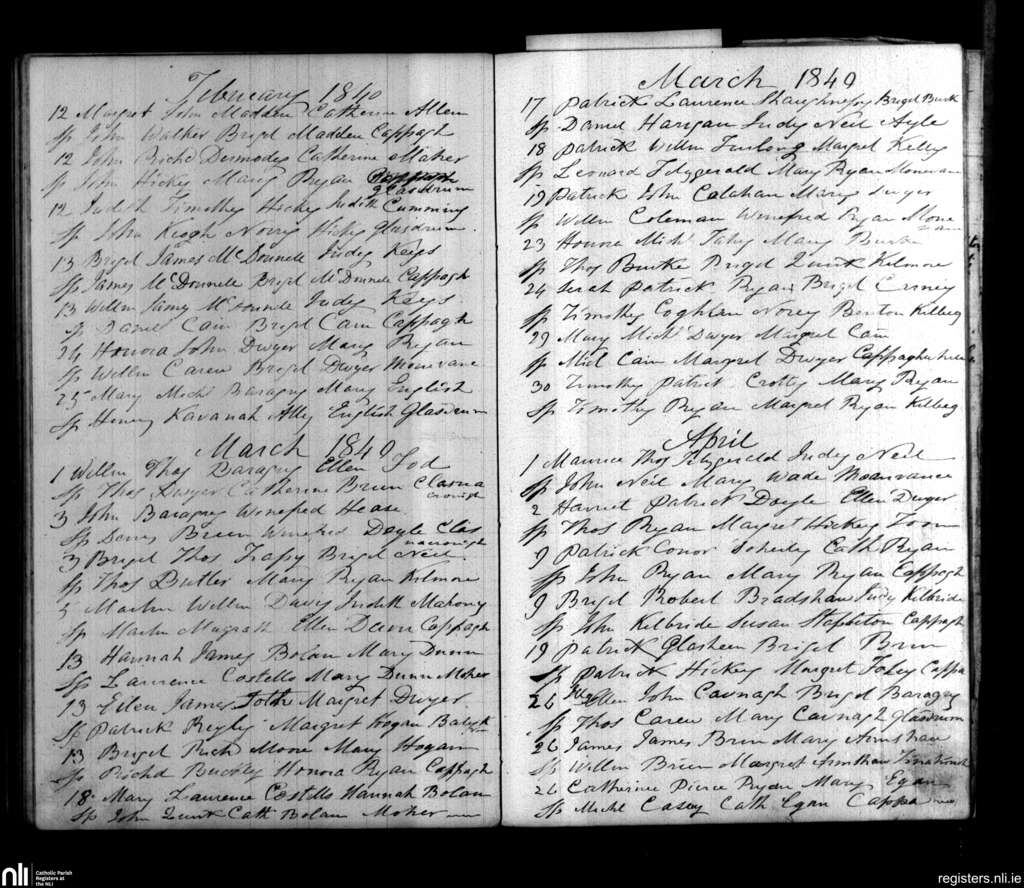 February 1840
12 Margret John Madden Catherine Allen
Sp John Walker Brigd Madden Cappagh
12 John Richd Dermody Catherine Maher
Sp John Hickey Mary Ryan
Glasdrum
12 Judith Timothy Hickey Judith Cumming
Sp John Keogh Norry Hickey Glasdrum
13 Brigd James McDonnele Judy Keys
Sp James McDonnele Brigd McDonnele Cappagh
13 Willm James McDonnele Judy Keys
Sp Daniel Cain Brigd Cain Cappagh
24 Honora John Dwyer Mary Ryan
Sp Willm Carew Brigd Dwyer Monevane
25 Mary Michl Baragry Mary English
Sp Henry Kavanah Ally English Glasdrum
March 1840
1 Willm Thos Baragry Ellen
Sp Thos Dwyer Catherine Brien
3 John Baragry Winefred
Sp Denis Brien Winefred Doyle
3 Brigd Thos Brigd Neil
Sp Thos Butler Mary Ryan Kilmore
5 Martin Willm Davis Judith Mahony
Sp Martin Magrath Ellen Cappagh
13 Hannah James Bolan Mary Dunn
Sp Laurence Costello Mary Dunn Moher
13 Ellen James Margret Dwyer
Sp Patrick Margret Hogan
13 Brigd Richd Moore Mary Hogan
Sp Richd Buckly Honora Ryan Cappagh
18 Mary Laurence Costello Hannah Bolan
Sp John Quirk Cath Bolan Moher
March 1840
17 Patrick Laurence Shaughnessy Brigd Burk
Sp Daniel Hanrgan Judy Neil Ayle
18 Patrick Willm Furlong Margret Kelly
Sp Leonard Fitzgerald Mary Ryan
19 Patrick John Calahan Mary Dwyer
Sp Willm Coleman Winefred Ryan Mone
23 Honora Michl Fahy Mary Burke
Sp Thos Burke Brigd Quirk Kilmore
24 Patrick Ryan Brigd
Sp Timothy Coghlan Norey Benton Kilbeg
29 Mary Michl Dwyer Margret Cain
Sp Michl Cain Margret Dwyer
30 Timothy Patrick Crotty Mary Ryan
Sp Timothy Ryan Margret Ryan Kilbeg
April
1 Maurice Thos Fitzgerald Judy Neil
Sp John Neil Mary Wade Moanvane
2 Harriet Patrick Doyle Ellen Dwyer
Sp Thos Ryan Margret Hickey Toom
9 Patrick Conor Doherty Cath Ryan
Sp John Ryan Mary Ryan Cappagh
9 Brigd Robert Bradshaw Judy Kilbride
Sp John Kilbride Susan Stapleton Cappagh
19 Patrick Glasheen Brigd Brien
Sp Patrick Hickey Margret Foley Cappa
26 Ellen John Cavnagh Brigd Baragry
Sp Thos Carew Mary Cavnagh Glasdrum
26 James James Brien Mary Armshaw
Sp Willm Brien Margret Armshaw
26 Catherine Pierce Ryan Mary Egan
Sp Michl Casey Cath Egan Cappa
nli
Catholic Parish
Registers at
the NLI
registers.nli.ie